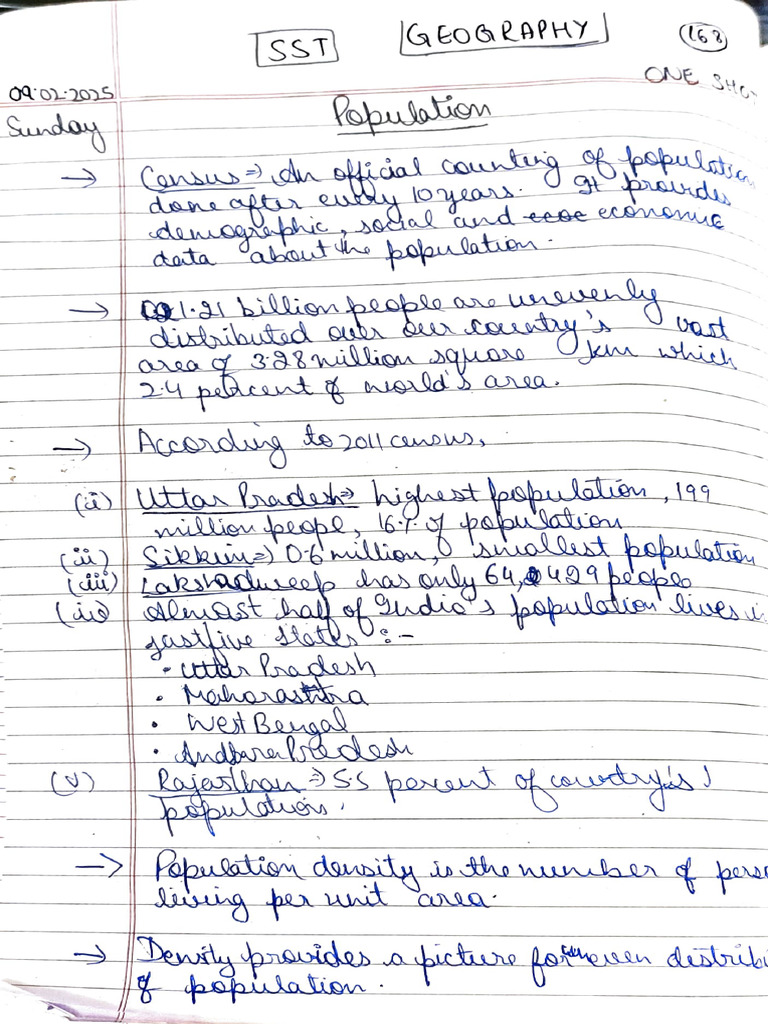 SST GEOGRAPHY 168
ONE SHOT
09.02.2025
Sunday
Population
→ Census ⇒ An official counting of population
done after every 10 years. It provides
demographic, social and economic
data about the population.
→ 1.21 billion people are unevenly
distributed over our country's vast
area of 3.28 million square km which
2.4 percent of world's area.
→ According to 2011 census,
(ii) Uttar Pradesh ⇒ highest population, 199
million people, 16% of population
(ii) Sikkim ⇒ 0.6 million, smallest population
(iii) Lakshadweep has only 64,429 people
(iv) Almost half of India's population lives i
just five states :-
• Uttar Pradesh
• Maharashtra
• West Bengal
• Andhra Pradesh
(v) Rajasthan ⇒ 5.5 percent of country's
population.
→ Population density is the number of perso
living per unit area.
→ Density provides a picture for even distribi
of population.